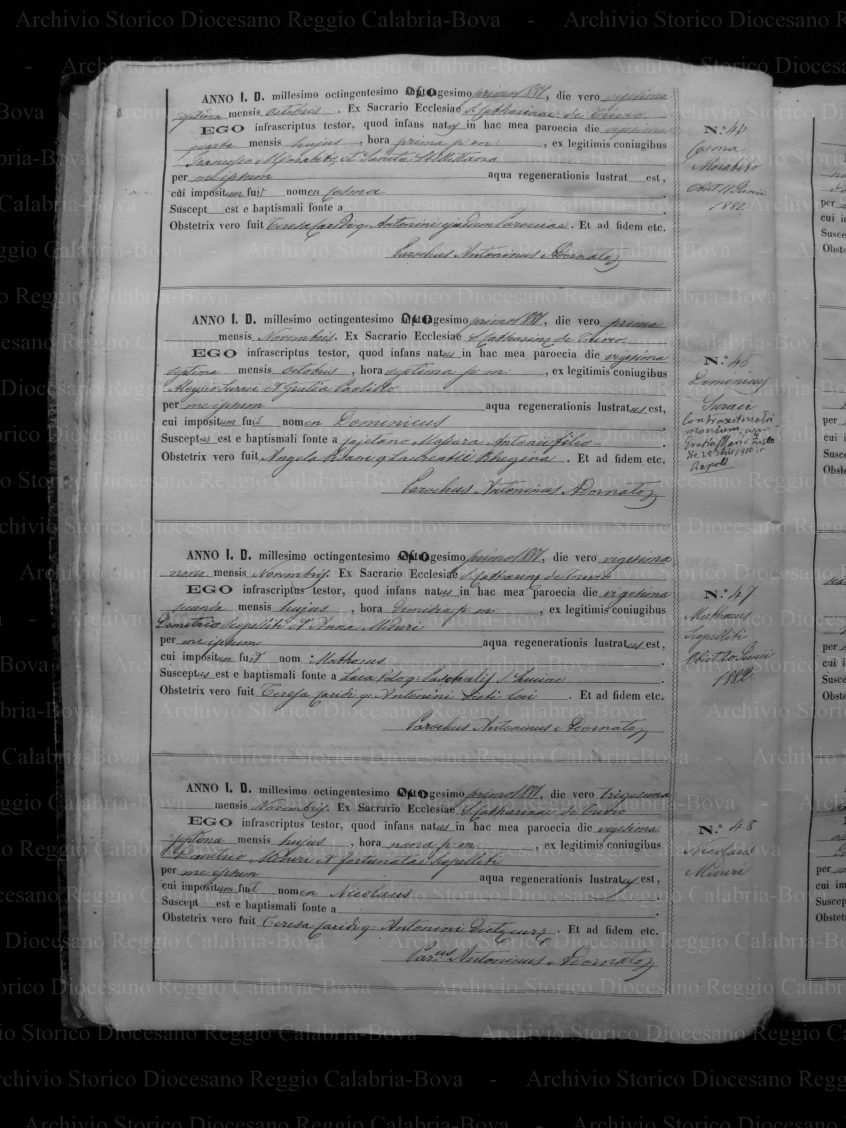 ANNO I. D. millesimo octingentesimo octogesimo primo 1881, die vero vigesima
septima mensis Octobris. Ex Sacrario Ecclesiae S. Catharinae de
EGO infrascriptus testor, quod infans natus in hac mea paroecia die vigesima
quarta mensis hujus, hora prima p. m:, ex legitimis conjugibus
Francisco Morabito, et Santa
per me ipsum aqua regenerationis lustrat est,
cui impositum fuit nomen Cosma
Suscept est e baptismali fonte a
Obstetrix vero fuit Teresa Caridi q. Antonini ejusdem Paroeciae. Et ad fidem etc.
Parochus Antoninus Adornato
N.º 45
Cosma
Morabito
Obiit Junii
1882
ANNO I. D. millesimo octingentesimo octogesimo primo 1881, die vero prima
mensis Novembris. Ex Sacrario Ecclesiae S. Catharinae de
EGO infrascriptus testor, quod infans natus in hac mea paroecia die vigesima
septima mensis Octobris, hora septima p. m:, ex legitimis conjugibus
Aloysio Surace et Gratia
per me ipsum aqua regenerationis lustratus est,
cui impositum fuit nomen Dominicus
Susceptus est e baptismali fonte a Cajetano Antonii filio
Obstetrix vero fuit Angela Pisani q. Laurentii Rhegina. Et ad fidem etc.
Parochus Antoninus Adornato
N.º 46
Dominicus
Surace
Contraxit matri
monium cum
Gratia Maria
die 28
ANNO I. D. millesimo octingentesimo octogesimo primo 1881, die vero vigesima
nona mensis Novembris. Ex Sacrario Ecclesiae S. Catharinae de
EGO infrascriptus testor, quod infans natus in hac mea paroecia die vigesima
secunda mensis hujus, hora dimidia p. m:, ex legitimis conjugibus
Demetrio Scopelliti et Anna Miduri
per me ipsum aqua regenerationis lustratus est,
cui impositum fuit nom: Mathaeus
Susceptus est e baptismali fonte a Luca q. Paschalis S. Luciae
Obstetrix vero fuit Teresa Caridi q. Antonini. Et ad fidem etc.
Parochus Antoninus Adornato
N.º 47
Mathaeus
Scopelliti
Obiit 20 Junii
1882
ANNO I. D. millesimo octingentesimo octogesimo primo 1881, die vero trigesima
mensis Novembris. Ex Sacrario Ecclesiae S. Catharinae de
EGO infrascriptus testor, quod infans natus in hac mea paroecia die vigesima
septima mensis hujus, hora nona p. m:, ex legitimis conjugibus
Demetrio Miduri et Fortunata Scopelliti
per me ipsum aqua regenerationis lustratus est,
cui impositum fuit nomen Nicolaus
Suscept est e baptismali fonte a
Obstetrix vero fuit Teresa Caridi q. Antonini. Et ad fidem etc.
Par.us Antoninus Adornato
N.º 48
Nicolaus
Miduri
Archivio Storico Diocesano Reggio Calabria-Bova